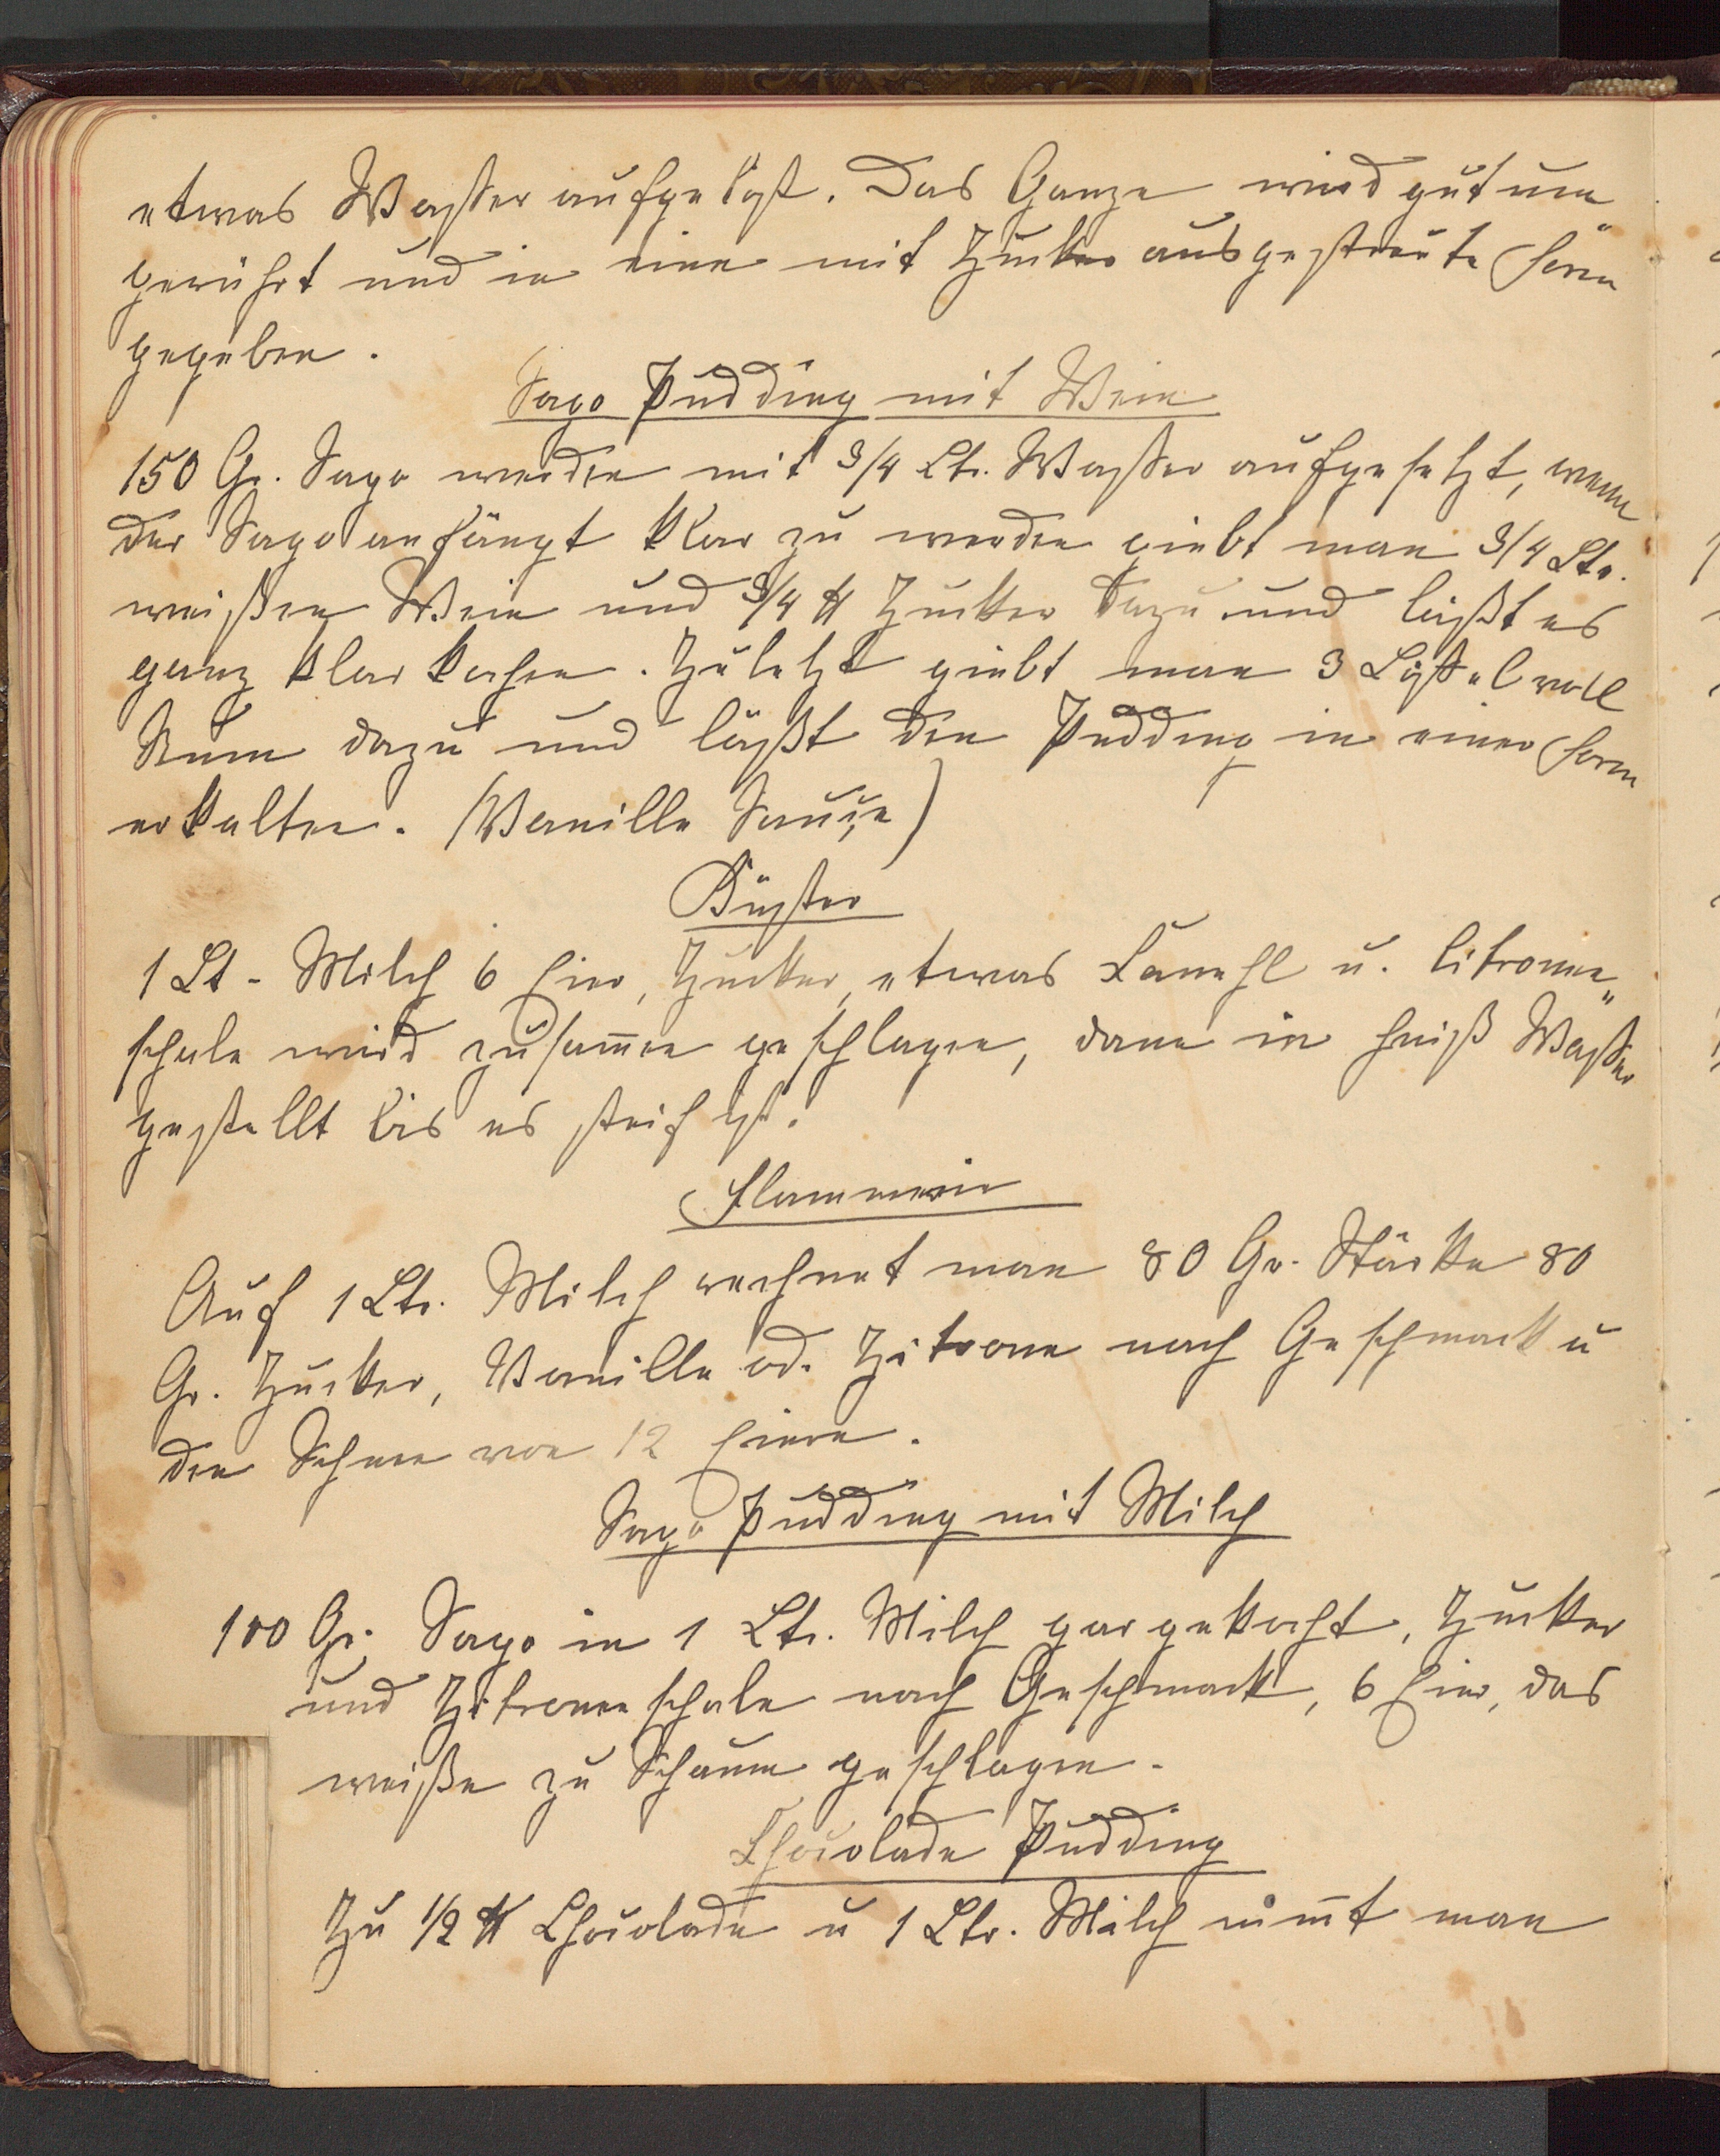 etwas Wasser aufgelöst. Das Ganze wird gut um„
gerührt und in eine mit Zucker ausgestreute Form
gegeben.
Sago Pudding mit Wein
150 Gr. Sago werden mit 3/4 Ltr. Wasser aufgesetzt, wenn
der Sago anfängt klar zu werden giebt man 3/4 Ltr.
weißen Wein und 3/4 ℔ Zucker dazu und läßt es
ganz klar kochen. Zuletzt giebt man 3 Löffel voll
Rum dazu und läßt den Pudding in einer Form
erkalten. (Vanille Sauçe)
1 Lt. Milch 6 Eier, Zucker, etwas Canehl u. Citronen„
schale wird zusam̅en geschlagen, dann in heiß Wasser
gestellt bis es steif ist.
Flammerie
Auf 1 Ltr. Milch rechnet man 80 Gr. Stärke 80
Gr. Zucker, Vanille od. Zitrone nach Geschmack u
den Schnee von 12 Eiern.
Sago Pudding mit Milch
100 Gr. Sago in 1 Ltr. Milch gar gekocht, Zucker
und Zitronenschale nach Geschmack, 6 Eier, das
weiße zu Schaum geschlagen.
Chocolade Pudding
Zu 1/2 ℔ Chocolade u 1 Ltr. Milch nim̅t man